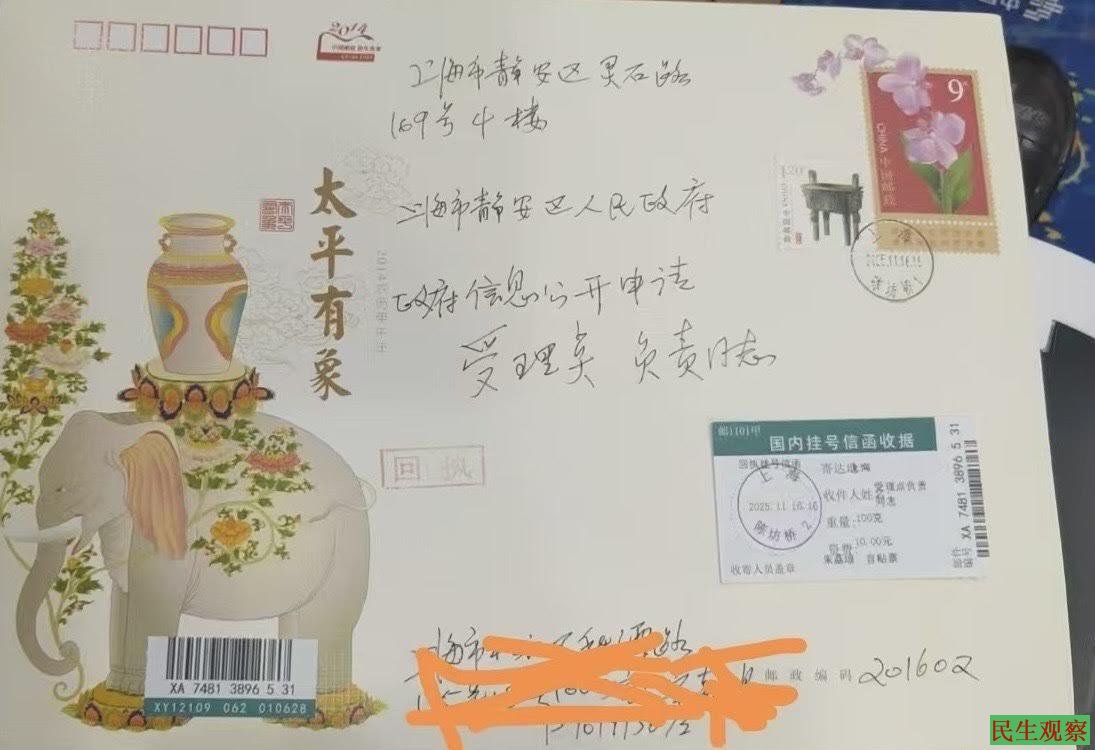 2014
上海市静安区灵石路
169号4楼
上海市静安区人民政府
政府信息公开申请
受理点 负责同志
太平有象
9
CHINA 中国邮政
1.20
中国邮政
上海
2025.11.16.16
回执
邮1101甲
国内挂号信函收据
回执挂号信函 寄达地:上海
收件人姓名:受理点负责同志
重量:100克
资费:10.00元
收寄人员盖章
邮件编号 XA 7481 3896 5 31
上海
2025.11.16.16
陈坊桥 2
XA 7481 3896 5 31
XY12109 062 010628
邮政编码 201602
民生观察